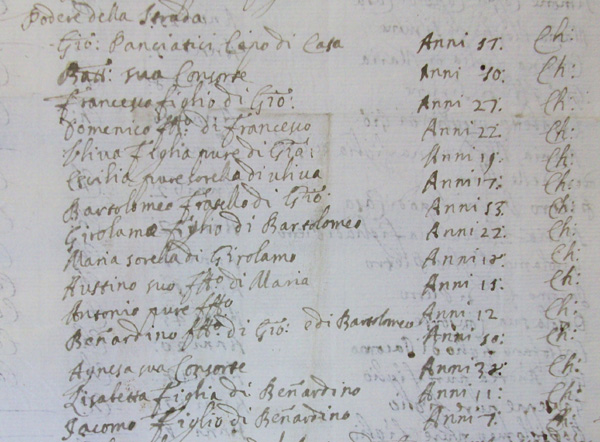 Podere della Strada
Gio: Panciatici Capo di Casa Anni 57: Ch:
Batt: sua Consorte Anni 50: Ch:
Francesco figlio di Gio: Anni 27: Ch:
Domenico ffo: di Francesco Anni 22: Ch:
Uliva Figlia pure di Gio: Anni Ch:
Cicilia pure sorella di uliva Anni 17: Ch:
Bartolomeo fratello di Gio: Anni 53: Ch:
Girolamo figlio di Bartolomeo Anni 22: Ch:
Maria sorella di Girolamo Anni 18: Ch:
Austino suo ffo: di Maria Anni 15: Ch:
Antonio pure ffo: Anni 12 Ch:
Bernardino ffo: di Gio: e di Bartolomeo Anni 50: Ch:
Agnesa sua Consorte Anni 38: Ch:
Lisabetta Figlia di Bernardino Anni 11: Ch:
Jacomo Figlio di Bernardino Anni 7: Ch: